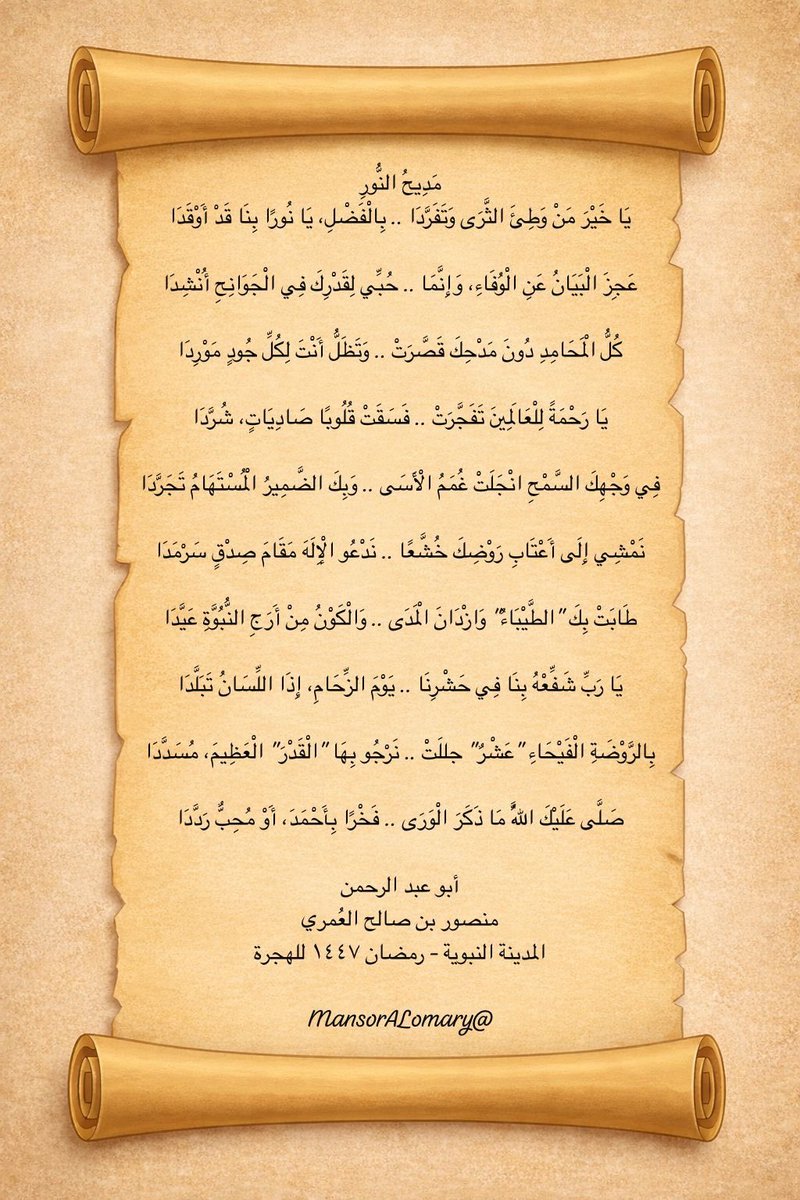 مَدِيحُ النُّورِ
يَا خَيْرَ مَنْ وَطِئَ الثَّرَى وَتَفَرَّدَا .. بِالْفَضْلِ، يَا نُورًا بِنَا قَدْ أَوْقَدَا
عَجِزَ الْبَيَانُ عَنِ الْوُفَاءِ، وَإِنَّمَا .. حُبِّي لِقَدْرِكَ فِي الْجَوَانِحِ أُنْشِدَا
كُلُّ الْمَحَامِدِ دُونَ مَدْحِكَ قَصَّرَتْ .. وَتَظَلُّ أَنْتَ لِكُلِّ جُودٍ مَوْرِدَا
يَا رَحْمَةً لِلْعَالَمِينَ تَفَجَّرَتْ .. فَسَقَتْ قُلُوبًا صَادِيَاتٍ، شُرَّدَا
فِي وَجْهِكَ السَّمْحِ انْجَلَتْ غُمَمُ الْأَسَى .. وَبِكَ الضَّمِيرُ الْمُسْتَهَامُ تَجَرَّدَا
نَمْشِي إِلَى أَعْتَابِ رَوْضِكَ خُشَّعًا .. نَدْعُو الْإِلَهَ مَقَامَ صِدْقٍ سَرْمَدَا
طَابَتْ بِكَ "الطَّيْبَاءُ" وَازْدَانَ الْمَدَى .. وَالْكَوْنُ مِنْ أَرَجِ النُّبُوَّةِ عَيَّدَا
يَا رَبِّ شَفِّعْهُ بِنَا فِي حَشْرِنَا .. يَوْمَ الزِّحَامِ، إِذَا اللِّسَانُ تَبَلَّدَا
بِالرَّوْضَةِ الْفَيْحَاءِ "عَشْرٌ" جللَتْ .. نَرْجُو بِهَا "الْقَدْرَ" الْعَظِيمَ، مُسَدَّدَا
صَلَّى عَلَيْكَ اللهُ مَا ذَكَرَ الْوَرَى .. فَخْرًا بِأَحْمَدَ، أَوْ مُحِبٌّ رَدَّدَا
أبو عبد الرحمن
منصور بن صالح العُمري
المدينة النبوية - رمضان ١٤٤٧ للهجرة
MansorALomary@